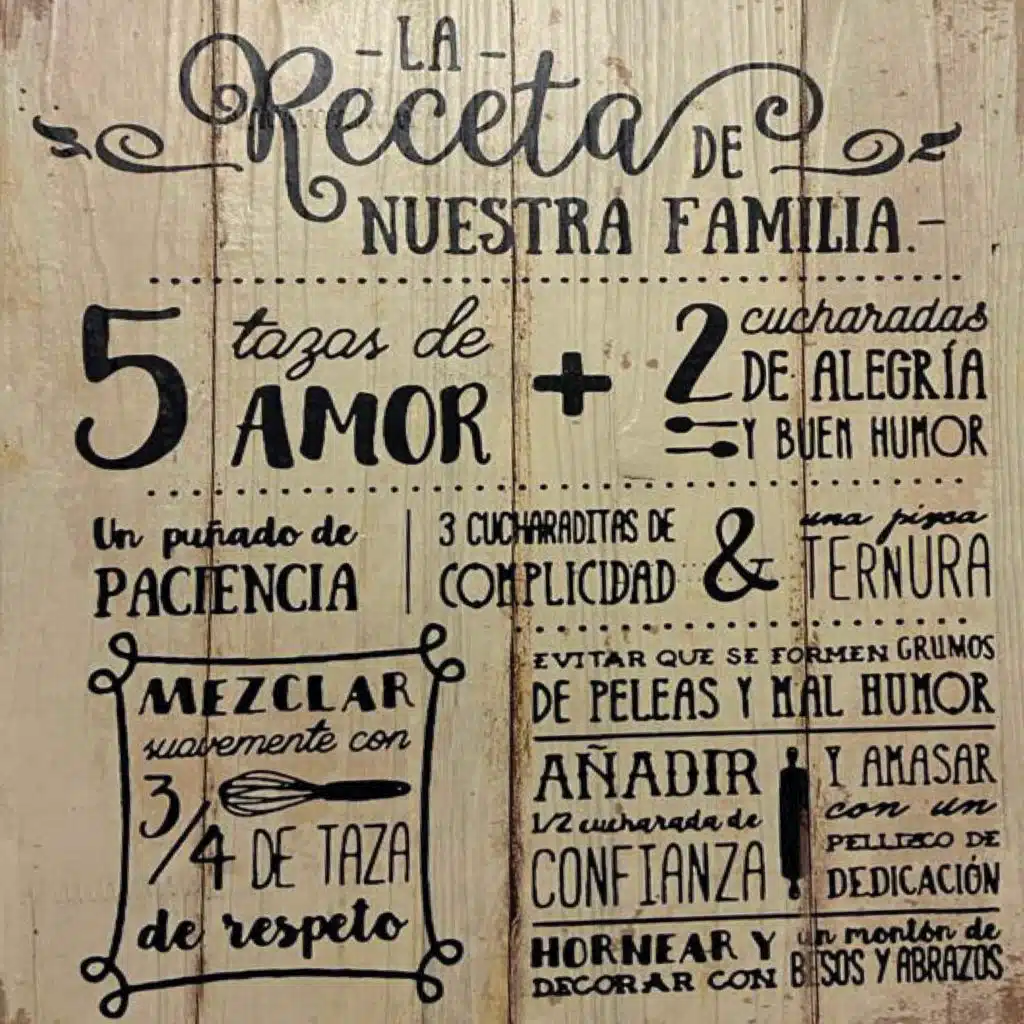 - LA -
Receta DE
NUESTRA FAMILIA.-
5 tazas de
AMOR
+
2 cucharadas
DE ALEGRÍA
Y BUEN HUMOR
Un puñado de
PACIENCIA
3 CUCHARADITAS DE
COMPLICIDAD
&
una pizca
TERNURA
MEZCLAR
suavemente con
3/4 DE TAZA
de respeto
EVITAR QUE SE FORMEN GRUMOS
DE PELEAS Y MAL HUMOR
AÑADIR
1/2 cucharada de
CONFIANZA
Y AMASAR
con un
PELLIZCO DE
DEDICACIÓN
HORNEAR Y un montón de
DECORAR CON BESOS Y ABRAZOS